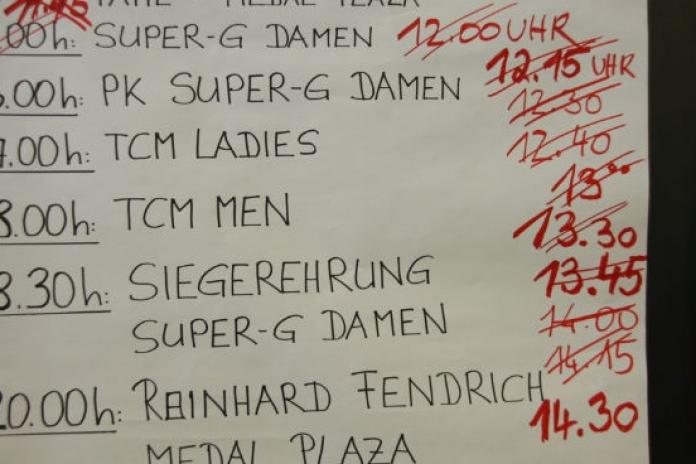 11.45
MEDAL PLAZA
.00h: SUPER-G DAMEN 12.00 UHR
12.15 UHR
.00h: PK SUPER-G DAMEN
12.30
7.00h: TCM LADIES
12.40
13°°
8.00h: TCM MEN
13.30
8.30h: SIEGEREHRUNG
13.45
SUPER-G DAMEN
14.00
14.15
20.00h: REINHARD FENDRICH
14.30
MEDAL PLAZA